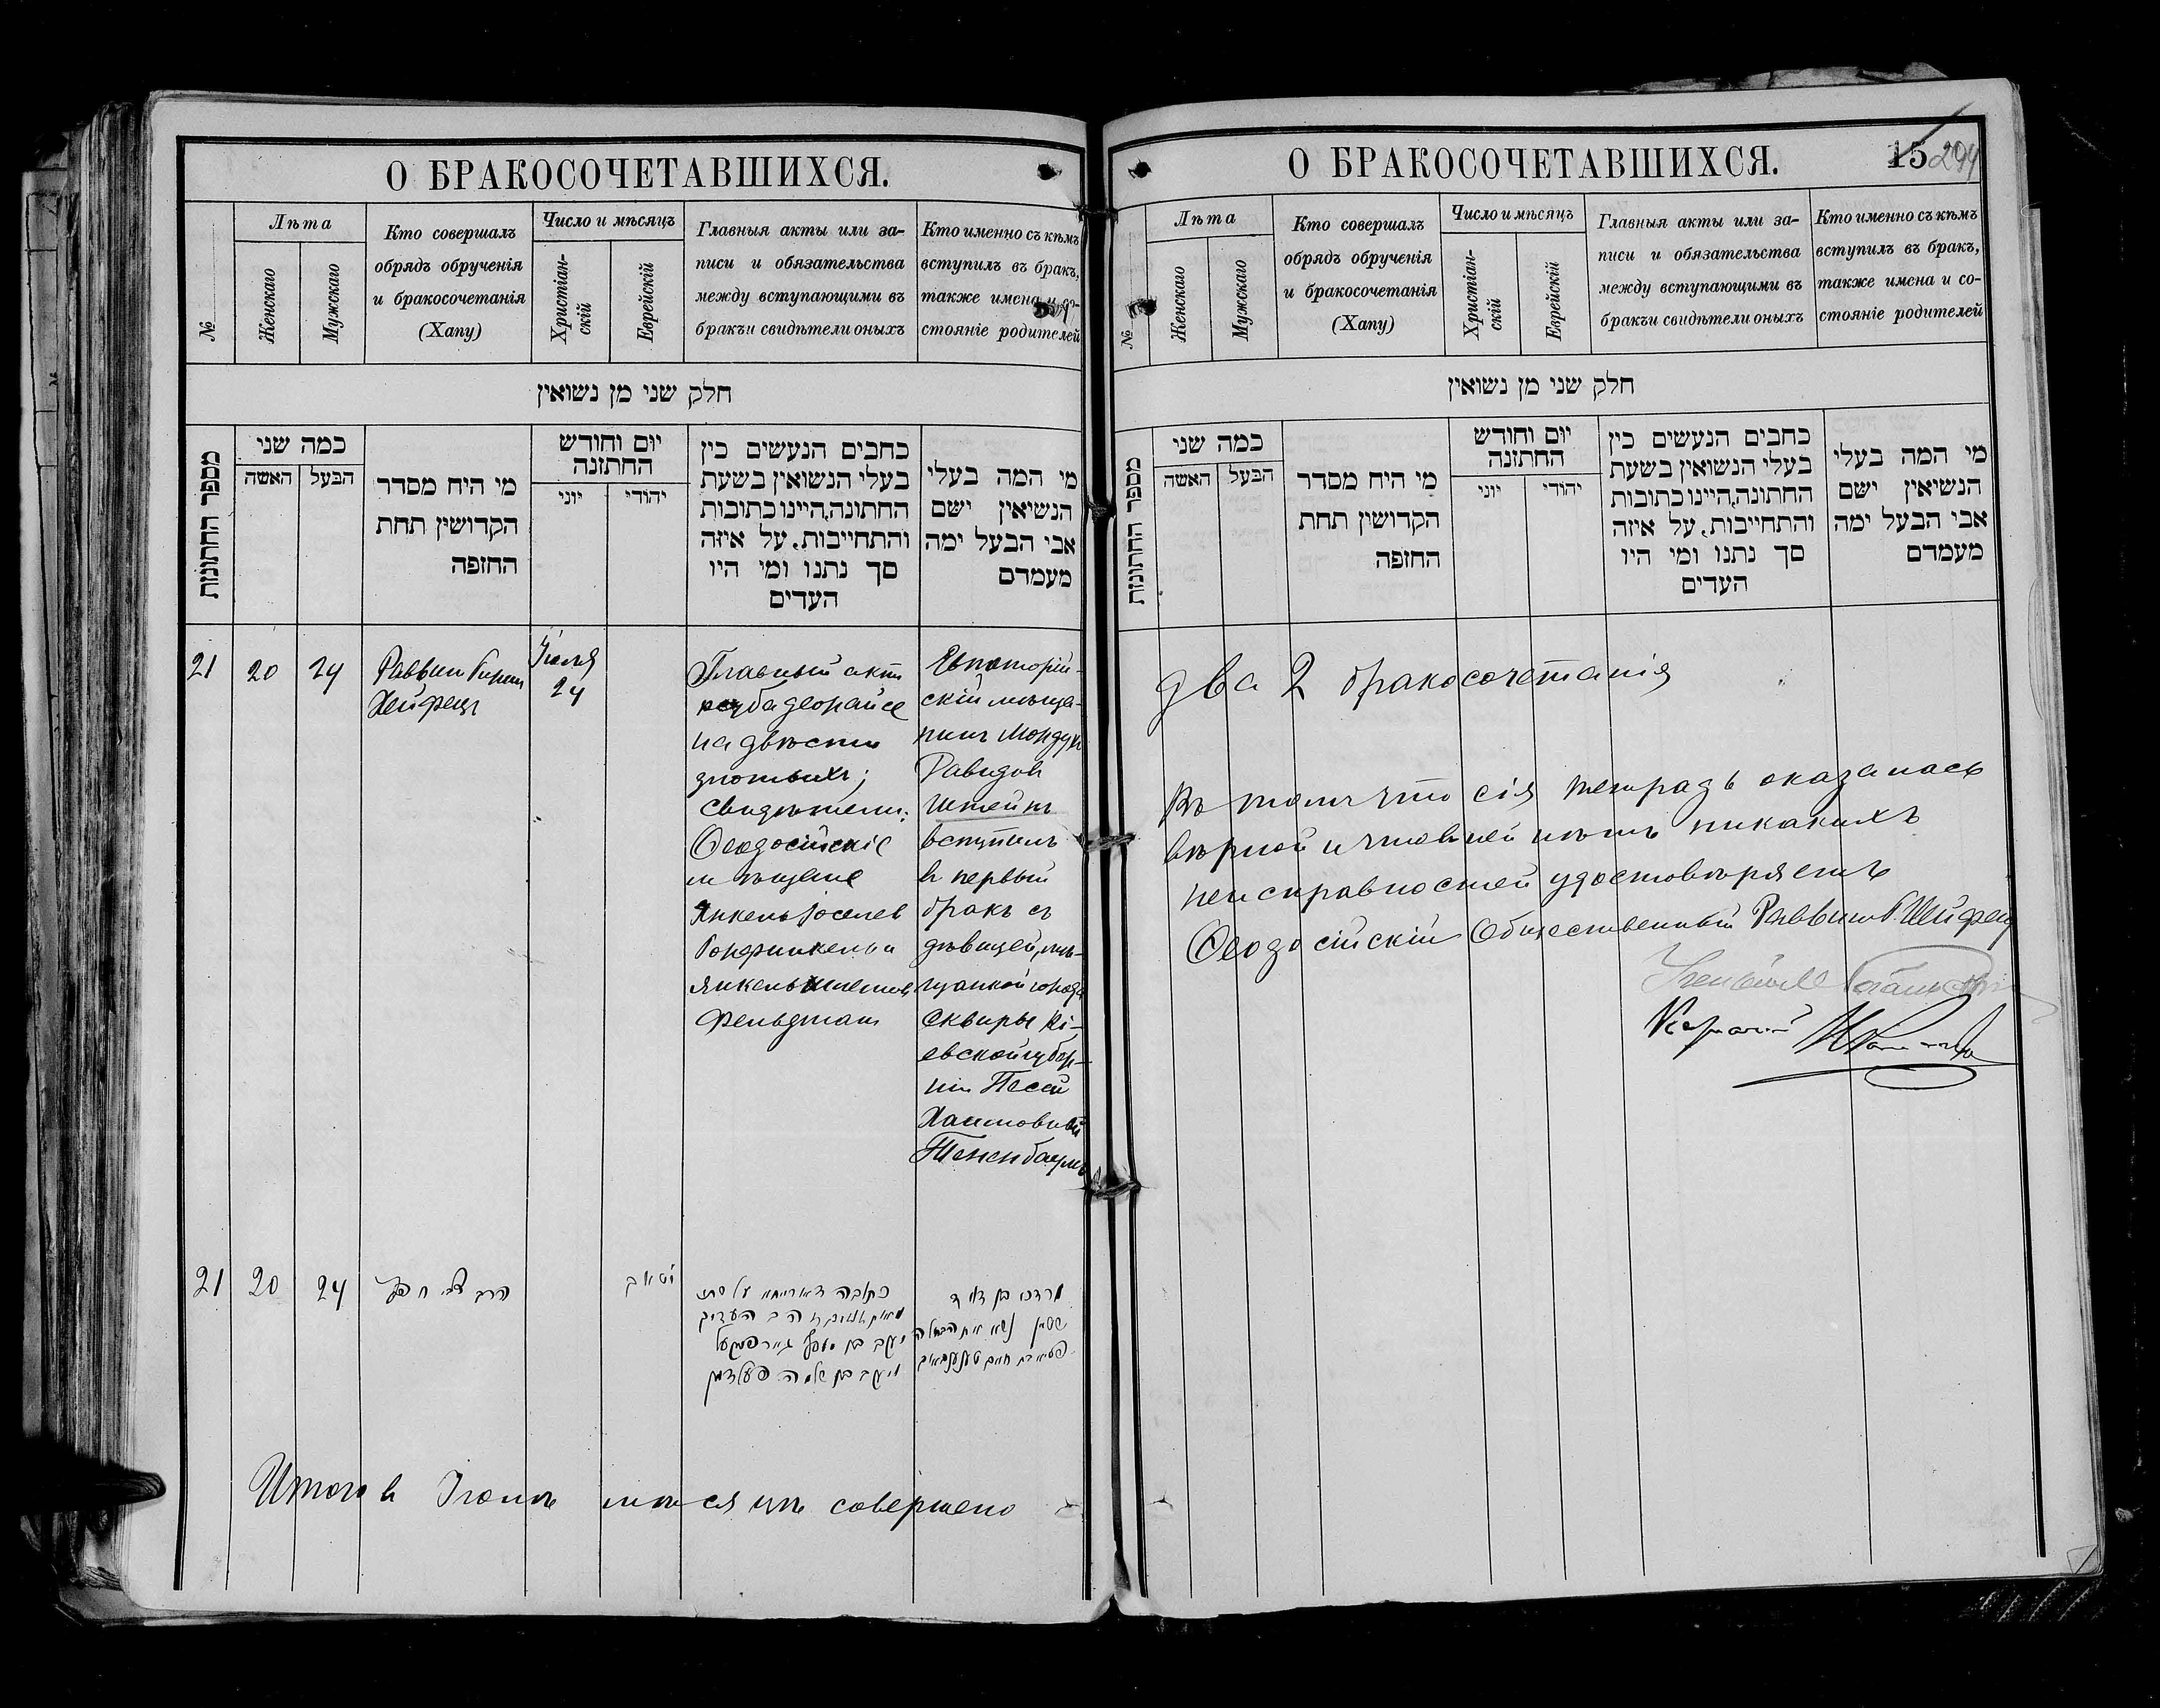 О БРАКОСОЧЕТАВШИХСЯ.
№
Лѣта
Женскаго
Мужскаго
Кто совершалъ
обрядъ обрученія
и бракосочетанія
(Хапу)
Число и мѣсяцъ
Христіан-
скій
Еврейскій
Главныя акты или за-
писи и обязательства
между вступающими въ
бракъ и свидѣтели оныхъ
Кто именно съ кѣмъ
вступилъ въ бракъ,
также имена и со-
стояніе родителей
חלק שני מן נשואין
מספר החתונות
כמה שני
האשה
הבעל
מי היח מסדר
הקדושין תחת
החופה
יום וחודש
החתונה
יוני
יהודי
כחבים הנעשים כין
בעלי הנשואין בשעת
החתונה, היינו כתובות
והתחייבות, על איזה
סך נתנו ומי היו
העדים
מי המה בעלי
הנשיאין ישם
אבי הבעל ימה
מעמדם
21
20
24
Раввин Гирш
Хейфецъ
Іюня
24
Главный актъ
кетуба деорайсе
на двѣсти
злотыхъ;
Свидѣтели:
Ѳеодосійскіе
мѣщане
Янкель Іоселев
и
Янкель
Фельдман
Евпаторій-
скій мѣща-
нинъ Мордух
Давидов
Штейнъ
вступилъ
в первый
бракъ съ
дѣвицей, мѣ-
щанкой города
Сквиры Кі-
евской губер-
ніи Песей
Хаимовной
Тененбаумъ
21
20
24
הרב
כתובה דאורייתא על סך
העדים
יעקב בן יוסף
ויעקב בן שלמה פעלדמן
מרדכי בן דוד
שטיין נשא את הבתולה
בת חיים טענענבוים
Итого в Іюнѣ мѣсяцѣ совершено
О БРАКОСОЧЕТАВШИХСЯ.
15
294
№
Лѣта
Женскаго
Мужскаго
Кто совершалъ
обрядъ обрученія
и бракосочетанія
(Хапу)
Число и мѣсяцъ
Христіан-
скій
Еврейскій
Главныя акты или за-
писи и обязательства
между вступающими въ
бракъ и свидѣтели оныхъ
Кто именно съ кѣмъ
вступилъ въ бракъ,
также имена и со-
стояніе родителей
חלק שני מן נשואין
מספר החתונות
כמה שני
האשה
הבעל
מי היח מסדר
הקדושין תחת
החופה
יום וחודש
החתונה
יוני
יהודי
כחבים הנעשים כין
בעלי הנשואין בשעת
החתונה, היינו כתובות
והתחייבות, על איזה
סך נתנו ומי היו
העדים
מי המה בעלי
הנשיאין ישם
אבי הבעל ימה
מעמדם
два 2 бракосочетанія
Въ томъ что сія тетрадь оказалась
вѣрной и в ней нѣтъ никакихъ
неисправностей удостовѣряетъ
Ѳеодосійскій Общественный Раввинъ Г. Хейфец